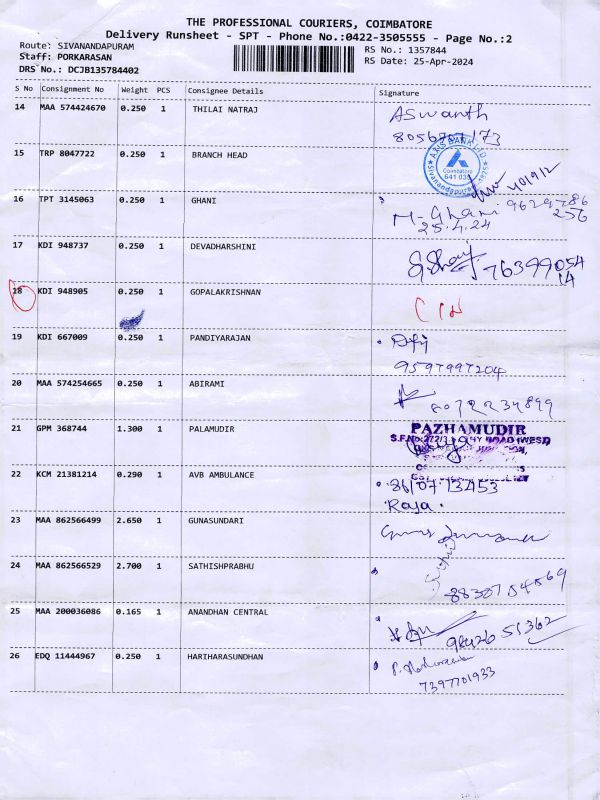 THE PROFESSIONAL COURIERS, COIMBATORE
Delivery Runsheet - SPT - Phone No.:0422-3505555 - Page No.:2
Route: SIVANANDAPURAM RS No.: 1357844
Staff: PORKARASAN RS Date: 25-Apr-2024
DRS No.: DCJB135784402
S No Consignment No Weight PCS Consignee Details Signature
14 MAA 574424670 0.250 1 THILAI NATRAJ Aswanth
15 TRP 8047722 0.250 1 BRANCH HEAD
AXIS BANK LTD
Coimbatore
641 035
Sivanandapuram
16 TPT 3145063 0.250 1 GHANI M. Ghani 9629786
256
25.4.24
17 KDI 948737 0.250 1 DEVADHARSHINI 76399054
14
18 KDI 948905 0.250 1 GOPALAKRISHNAN
19 KDI 667009 0.250 1 PANDIYARAJAN
9597997204
20 MAA 574254665 0.250 1 ABIRAMI
8072234899
21 GPM 368744 1.300 1 PALAMUDIR PAZHAMUDIR
22 KCM 21381214 0.290 1 AVB AMBULANCE 8610713453
Raja.
23 MAA 862566499 2.650 1 GUNASUNDARI
24 MAA 862566529 2.700 1 SATHISHPRABHU
8838754569
25 MAA 200036086 0.165 1 ANANDHAN CENTRAL 98426 55362
26 EDQ 11444967 0.250 1 HARIHARASUNDHAN
7397701933